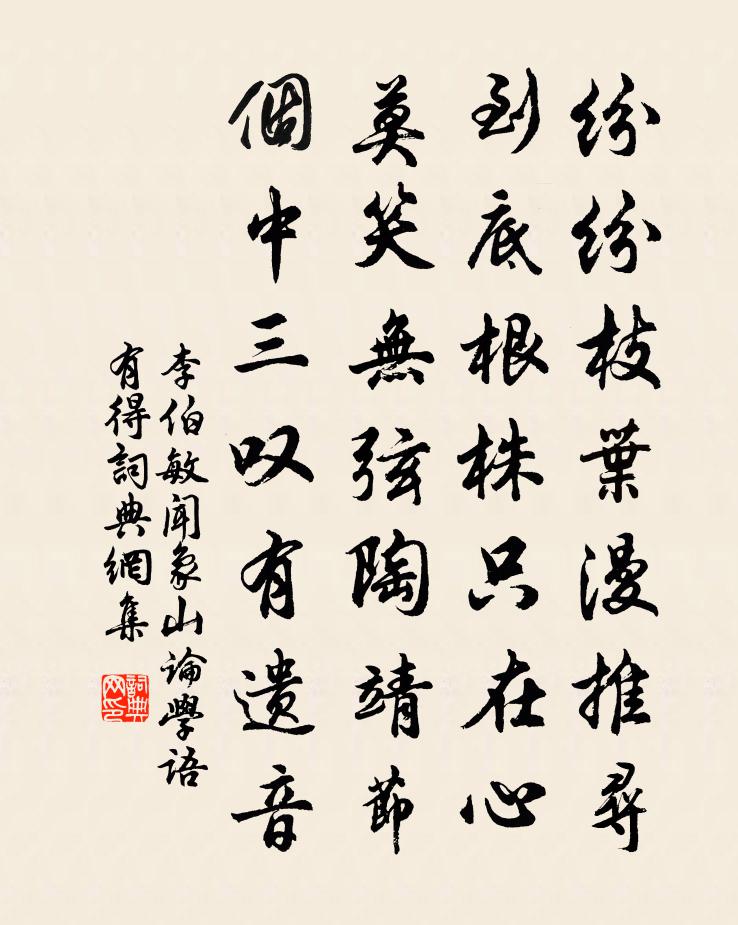 紛紛枝葉漫推尋
到底根株只在心
莫笑無弦陶靖節
個中三叹有遺音
李伯敏聞象山論學語
有得詞典網集
詞典
网印